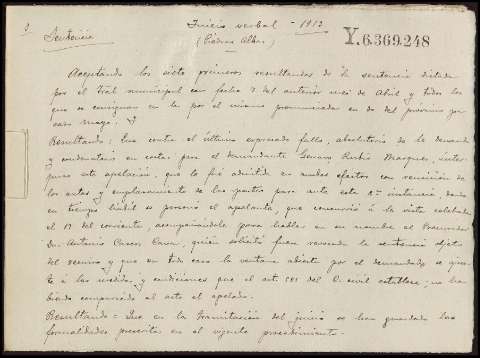 Juicio verbal - 1912
(Piedras Albas)
Y.6.369.248
Sentencia
Aceptando los siete primeros resultandos de la sentencia dictada
por el tral municipal con fecha 7 del anterior mes de Abril y todos los
que se consignan en la por el mismo pronunciada en dos del próximo pa
sado mayo. Y
Resultando: Que contra el último expresado fallo, absolutorio de la demanda
y condenatorio en costas para el demandante Genaro Rubio Marques, inter
puso este apelación, que le fué admitida en ambos efectos con remisión de
los autos y emplazamiento de las partes para ante esta 2ª instancia, donde
en tiempo hábil se personó el apelante, que concurrió á la vista celebrada
el 17 del corriente, acompañándole para hablar en su nombre el Procurador
Don Antonio Casas, quién solicitó fuera revocada la sentencia objeto
del recurso y que en todo caso la ventana abierta por el demandado se ajus
te á las medidas y condiciones que el art. 581 del C. civil establece; no ha
biendo comparecido al acto el apelado.
Resultando = Que en la tramitación del juicio se han guardado las
formalidades prescritas en el vigente procedimiento.